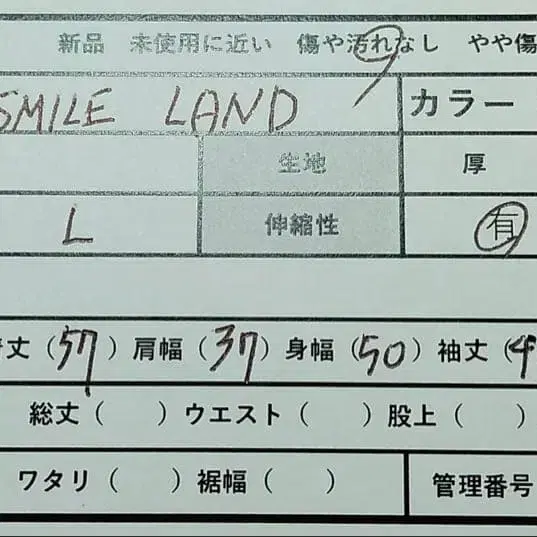 新品 未使用に近い 傷や汚れなし やや傷
SMILE LAND カラー
生地 厚
L 伸縮性 有
丈(57) 肩幅(37) 身幅(50) 袖丈(4
総丈( ) ウエスト( ) 股上( )
ワタリ( ) 裾幅( ) 管理番号